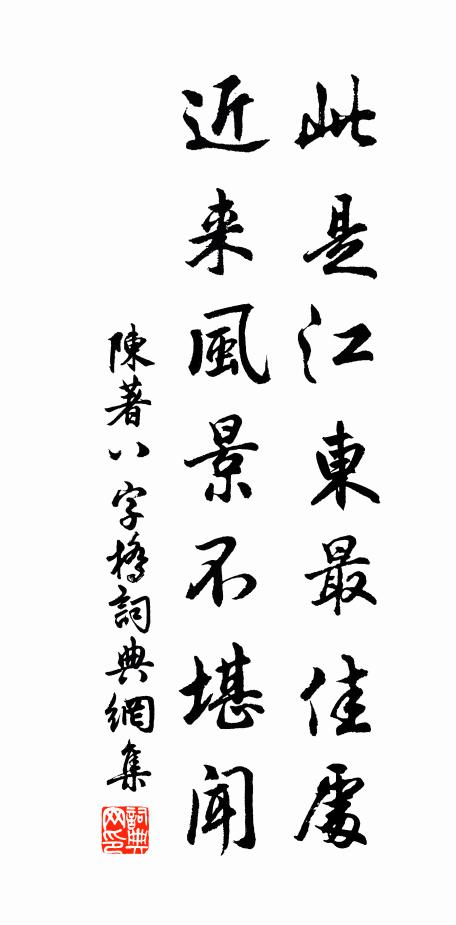 此是江東最佳處
近来風景不堪聞
陳著八字橋詞典網集
詞典网印